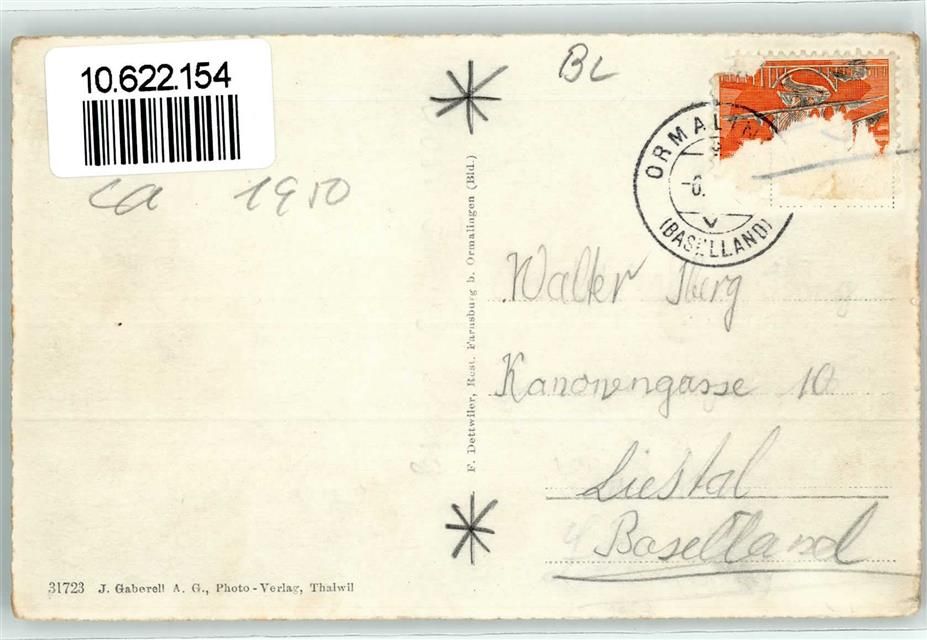 10.622.154
BL
ca 1950
ORMALIN
-6.
V
(BASELLAND)
F. Dettwiler, Rest. Farnsburg b. Ormalingen (Bld.)
Walter Iberg
Kanonengasse 10
Liestal
Baselland
31723 J. Gaberell A. G., Photo-Verlag, Thalwil